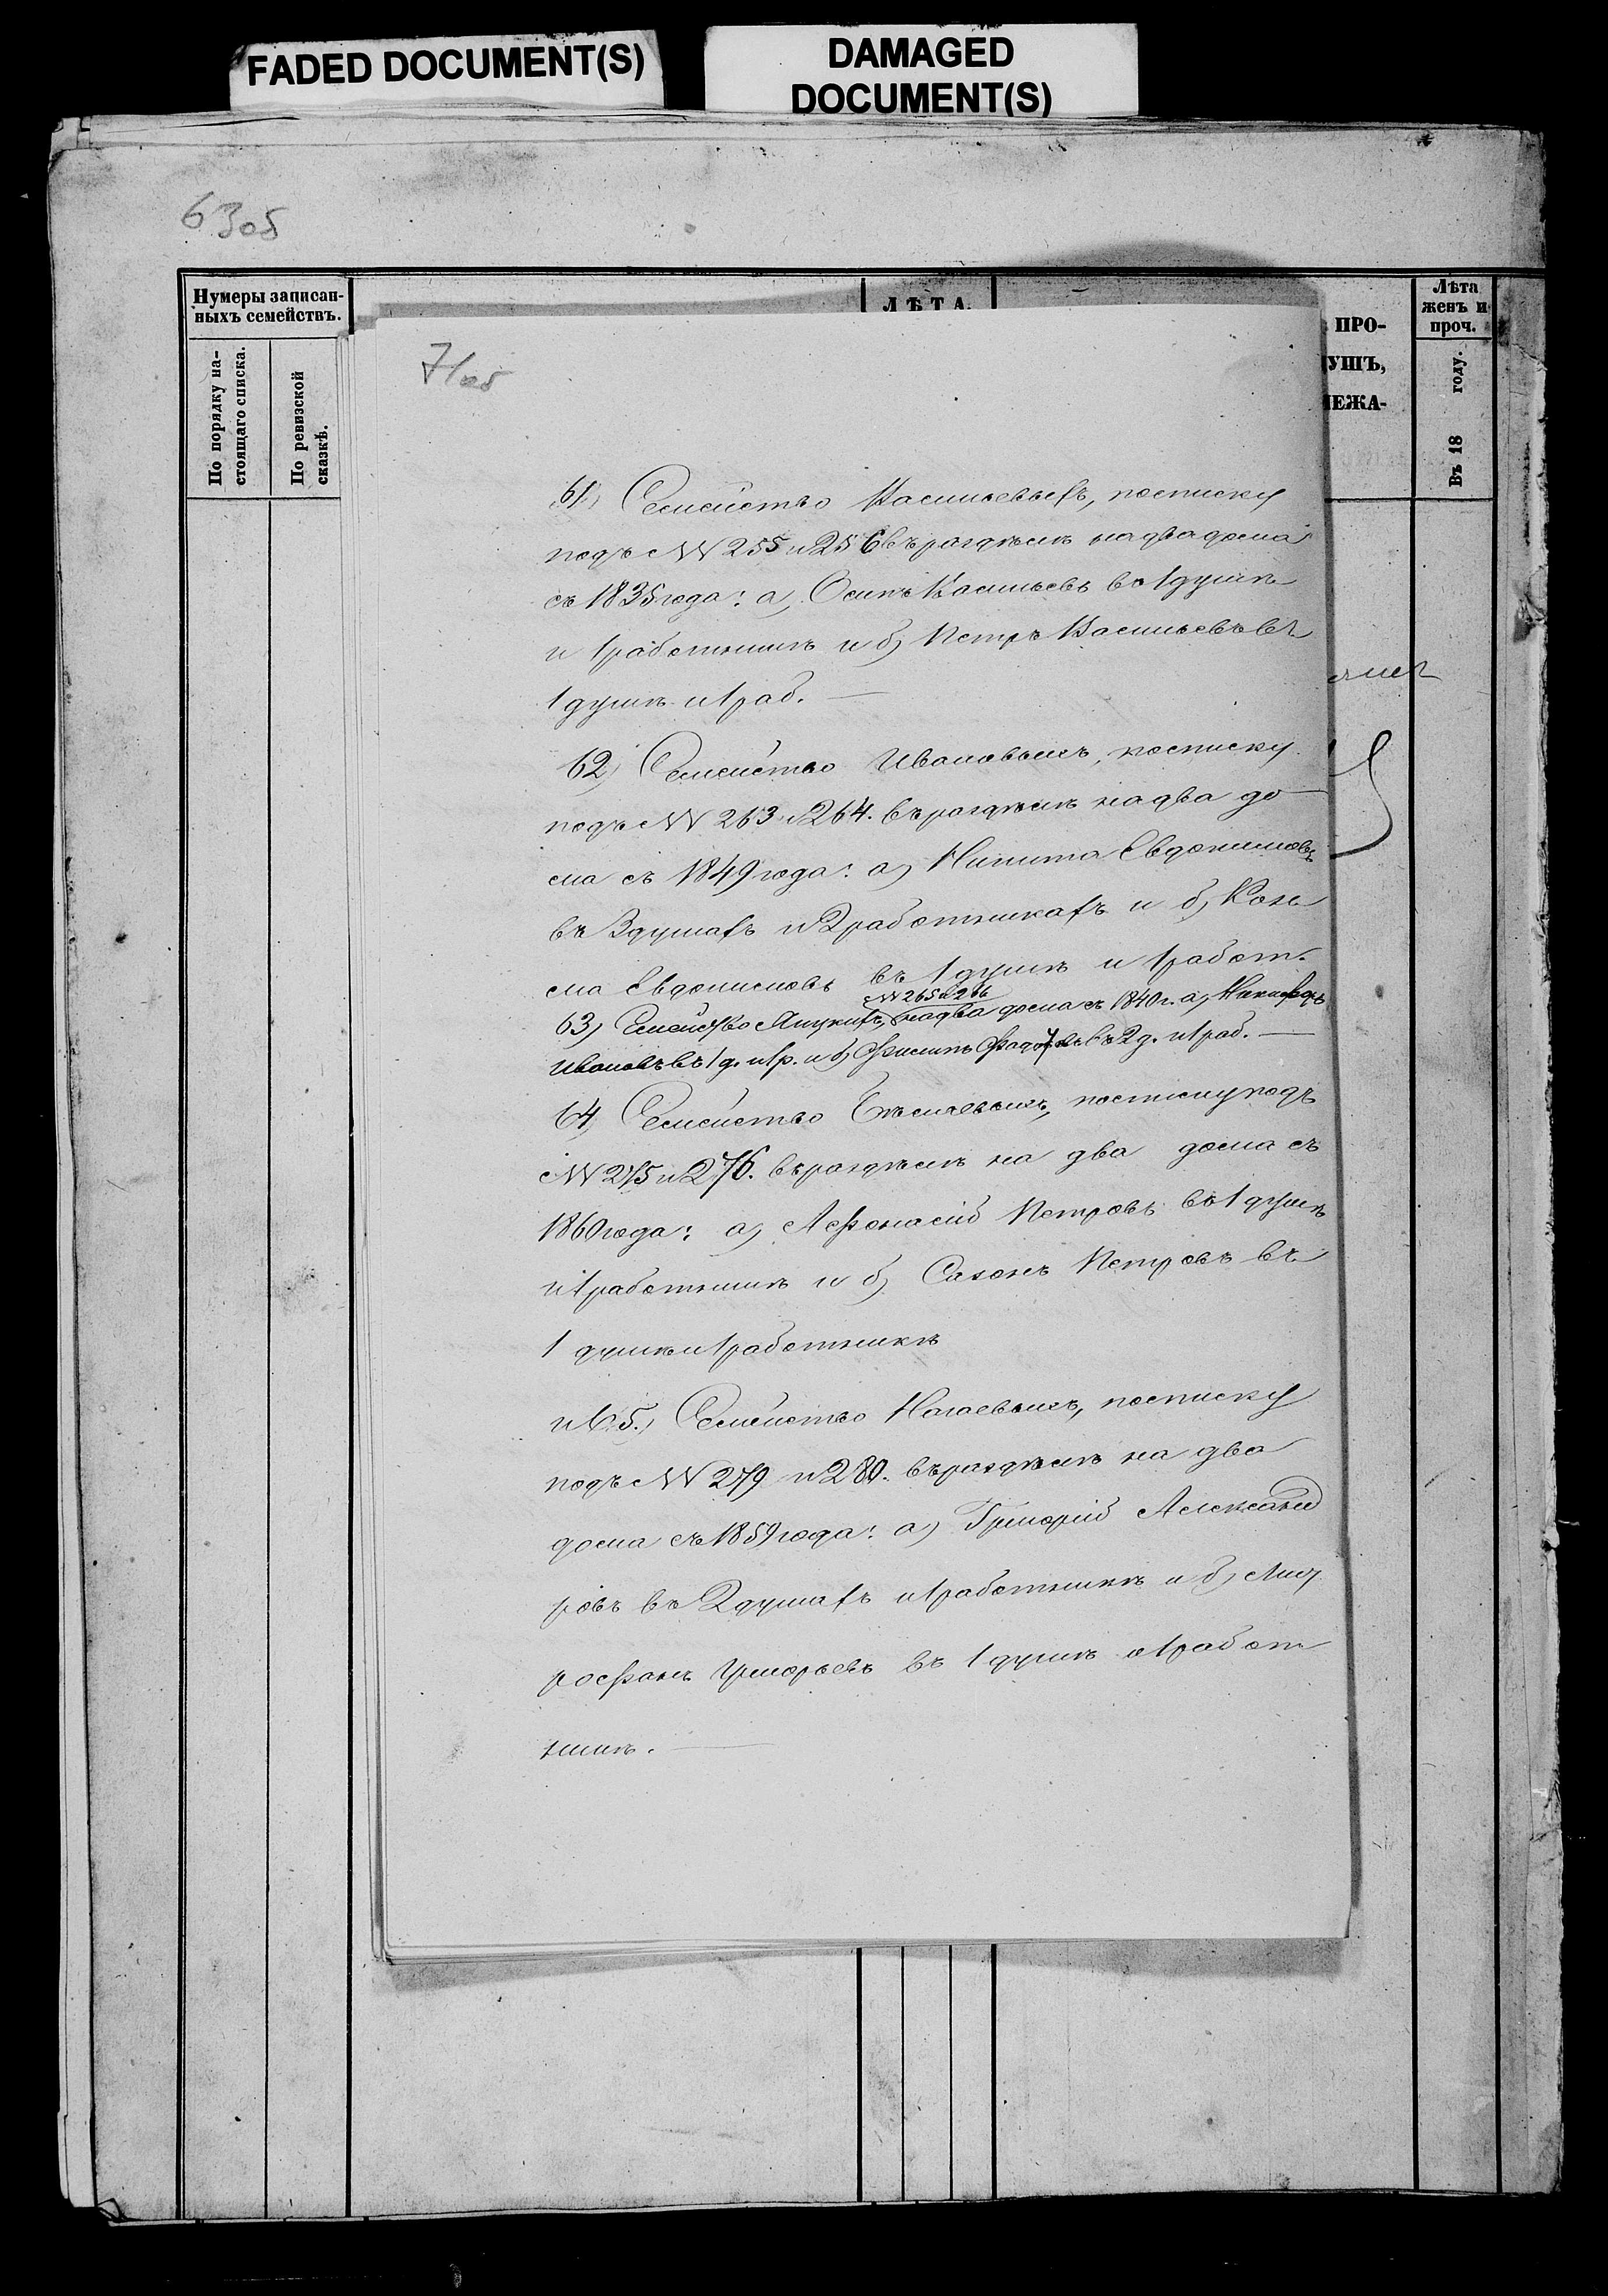 FADED DOCUMENT(S)
DAMAGED
DOCUMENT(S)
63об
Нумеры записан-
ныхъ семействъ.
По порядку на-
стоящаго списка.
По ревизской
сказкѣ.
ЛѢТА.
ПРО-
УШЪ,
ЕЖА-
Лѣта
женъ и
проч.
Въ 18 году.
7/об
61) Семейство Васильевыхъ, посписку
подъ №№ 255 и 256 въ раздѣлѣ на два дома
съ 1835 года: а) Осипъ Васильевъ въ 1 душѣ
и 1 работникѣ и б) Петръ Васильевъ въ
1 душѣ и 1 раб. —
62) Семейство Ивановыхъ, посписку
подъ №№ 263 и 264. въ раздѣлѣ на два до-
ма съ 1849 года: а) Никита Евдокимовъ
въ 3 душахъ и 2 работникахъ и б) Козь
ма Евдокимовъ въ 1 душѣ и 1 работ.
№№ 265 и 266
63) Семейство на два дома съ 1840 г. а) Никифоръ
Ивановъ въ 1 д. и 1 р. и б) Филипъ въ 2 д. и 1 раб. —
64) Семейство посписку подъ
№№ 275 и 276. въ раздѣлѣ на два дома съ
1860 года: а) Афонасій Петровъ въ 1 душѣ
и 1 работникѣ и б) Сазонъ Петровъ въ
1 душѣ и 1 работникѣ
и 65.) Семейство Ногаевыхъ, посписку
подъ №№ 279 и 280. въ раздѣлѣ на два
дома съ 1859 года: а) Григорій Александ
ровъ въ 2 душахъ и 1 работникѣ и б) Мит
рофанъ Григорьевъ въ 1 душѣ и 1 работ
никѣ. —